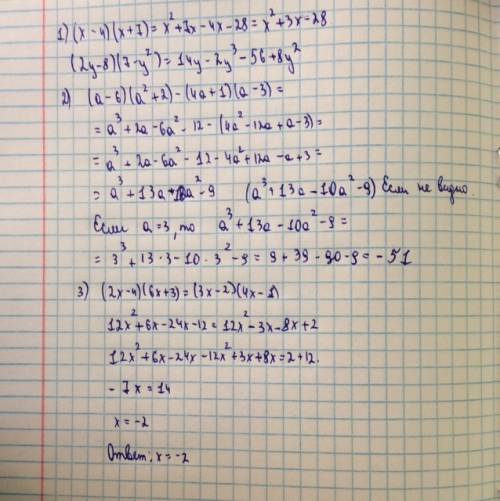 1) (x-4)(x+7) = x²+7x-4x-28 = x²+3x-28
(2y-8)(7-y²) = 14y-2y³-56+8y²
2) (a-6)(a²+2)-(4a+1)(a-3) =
= a³+2a-6a²-12-(4a²-12a+a-3) =
= a³+2a-6a²-12-4a²+12a-a+3 =
= a³+13a-10a²-9 (a³+13a-10a²-9) Если не видно.
Если a=3, то a³+13a-10a²-9 =
= 3³+13·3-10·3²-9 = 9+39-90-9 = -51
3) (2x-4)(6x+3) = (3x-2)(4x-1)
12x²+6x-24x-12 = 12x²-3x-8x+2
12x²+6x-24x-12x²+3x+8x = 2+12.
-7x = 14
x = -2
Ответ: x = -2